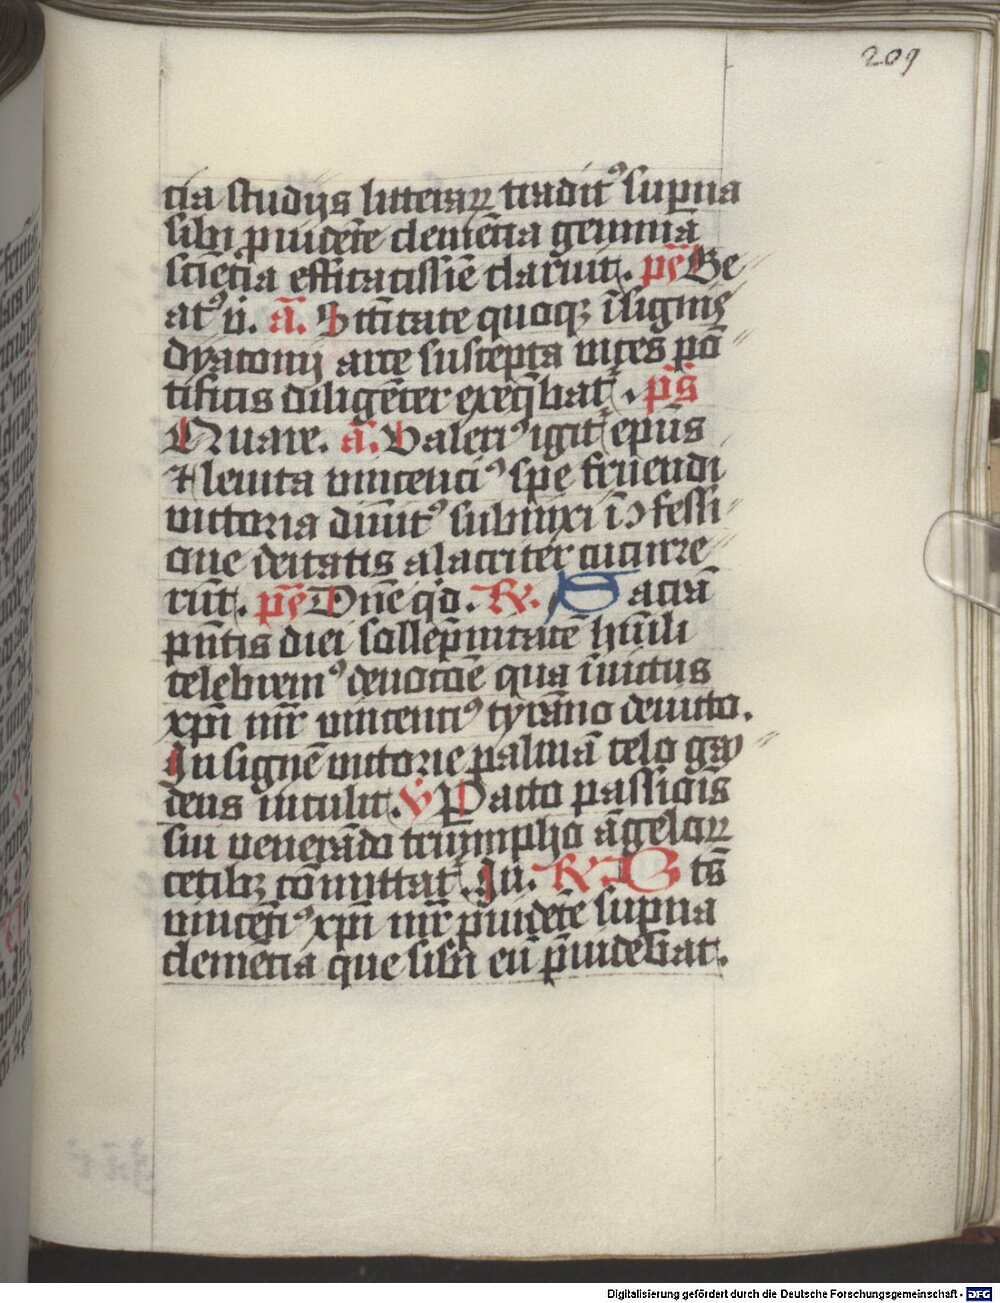 209
cia studijs litterarꝝ tradit᷒ sup̄na
sibi p̱uidēte clemētia gemina
sciētia efficacissīe claruit. ps̄ Be
at᷒ v̄. a᷃. Sc̄titate quoqꝫ īsignis
dyaconij arce suscepta vices pō
tificis diligēter exeq̄bat᷒. ps̄
Quare. a᷃. Valeri᷒ igit᷒ ep̄us
⁊ leuita vincenci᷒ spe fruendi
victoria diuīt᷒ subnixi ī ꝯfessi
one deitatis alacriter cucurre
rūt. ps̄ Dn̄e q̇d. R̷. Sacrā
pn̄tis diei sollēpnitatē hūili
celebrem᷒ deuocōe qua īuictus
xp̄i mr̄ vincenci᷒ tyrāno deuicto.
Insignē victorie palmā celo gau
dens intulit. V̷ Pacto passiōis
sui venerādo triumpho āgeloꝝ
cetibꝫ cōmittat᷒. In. R̷. Bt̄s
vincēti᷒ xp̄i mr̄ p̱uidēte sup̄na
clemētia que sibi eū p̄uidebat.
Digitalisierung gefördert durch die Deutsche Forschungsgemeinschaft - DFG